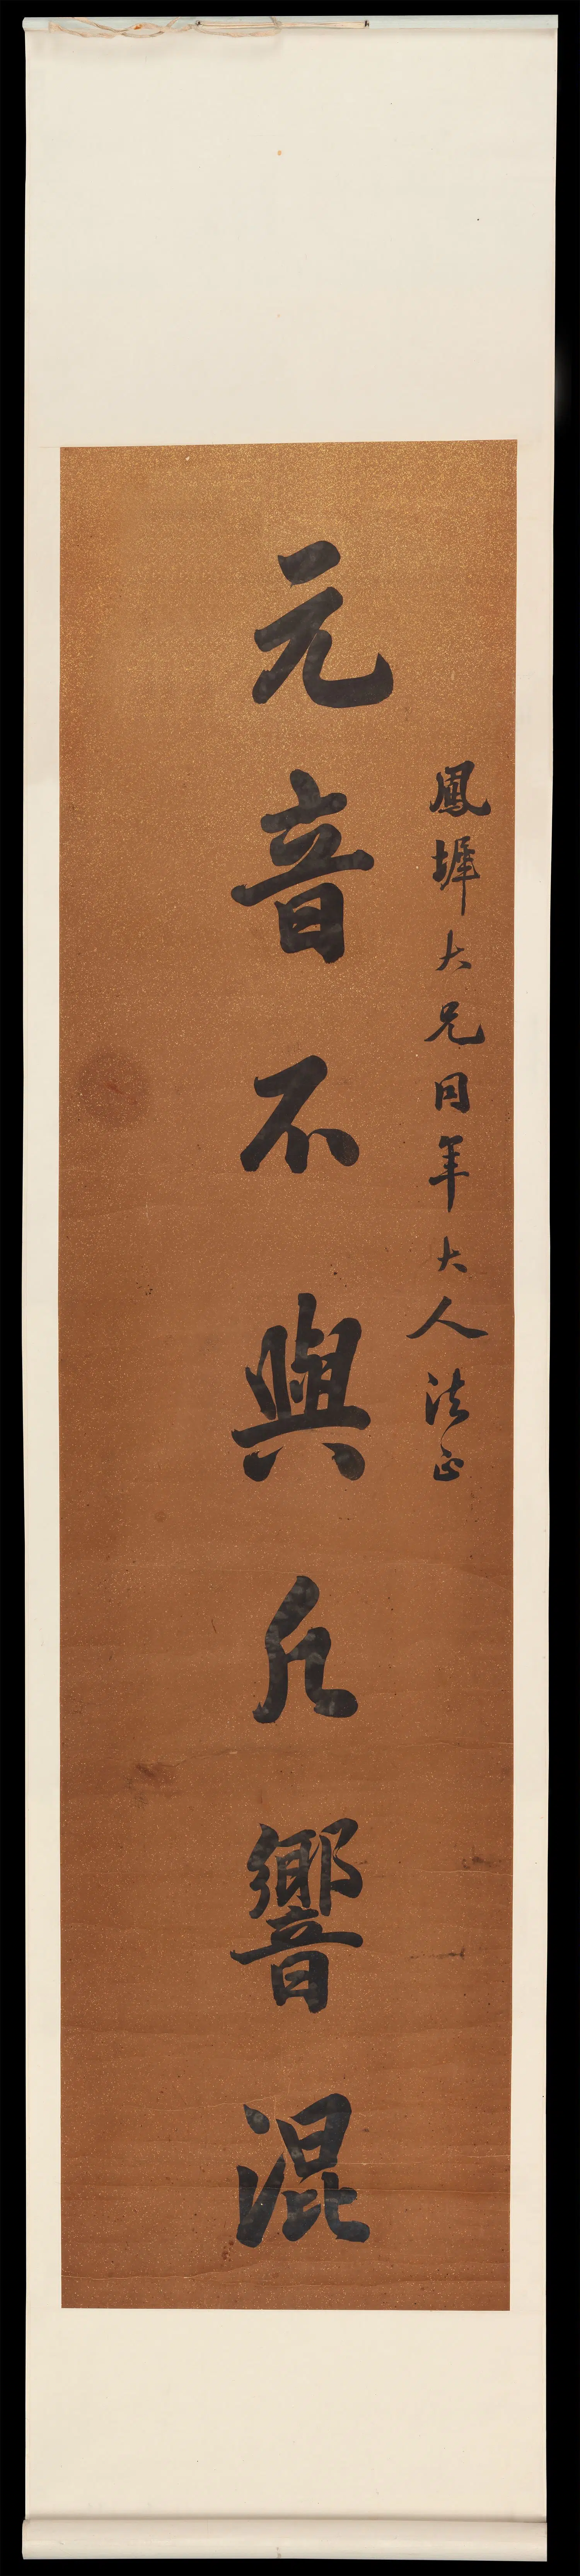 鳳墀大兄同年大人法正
元音不與凡響混